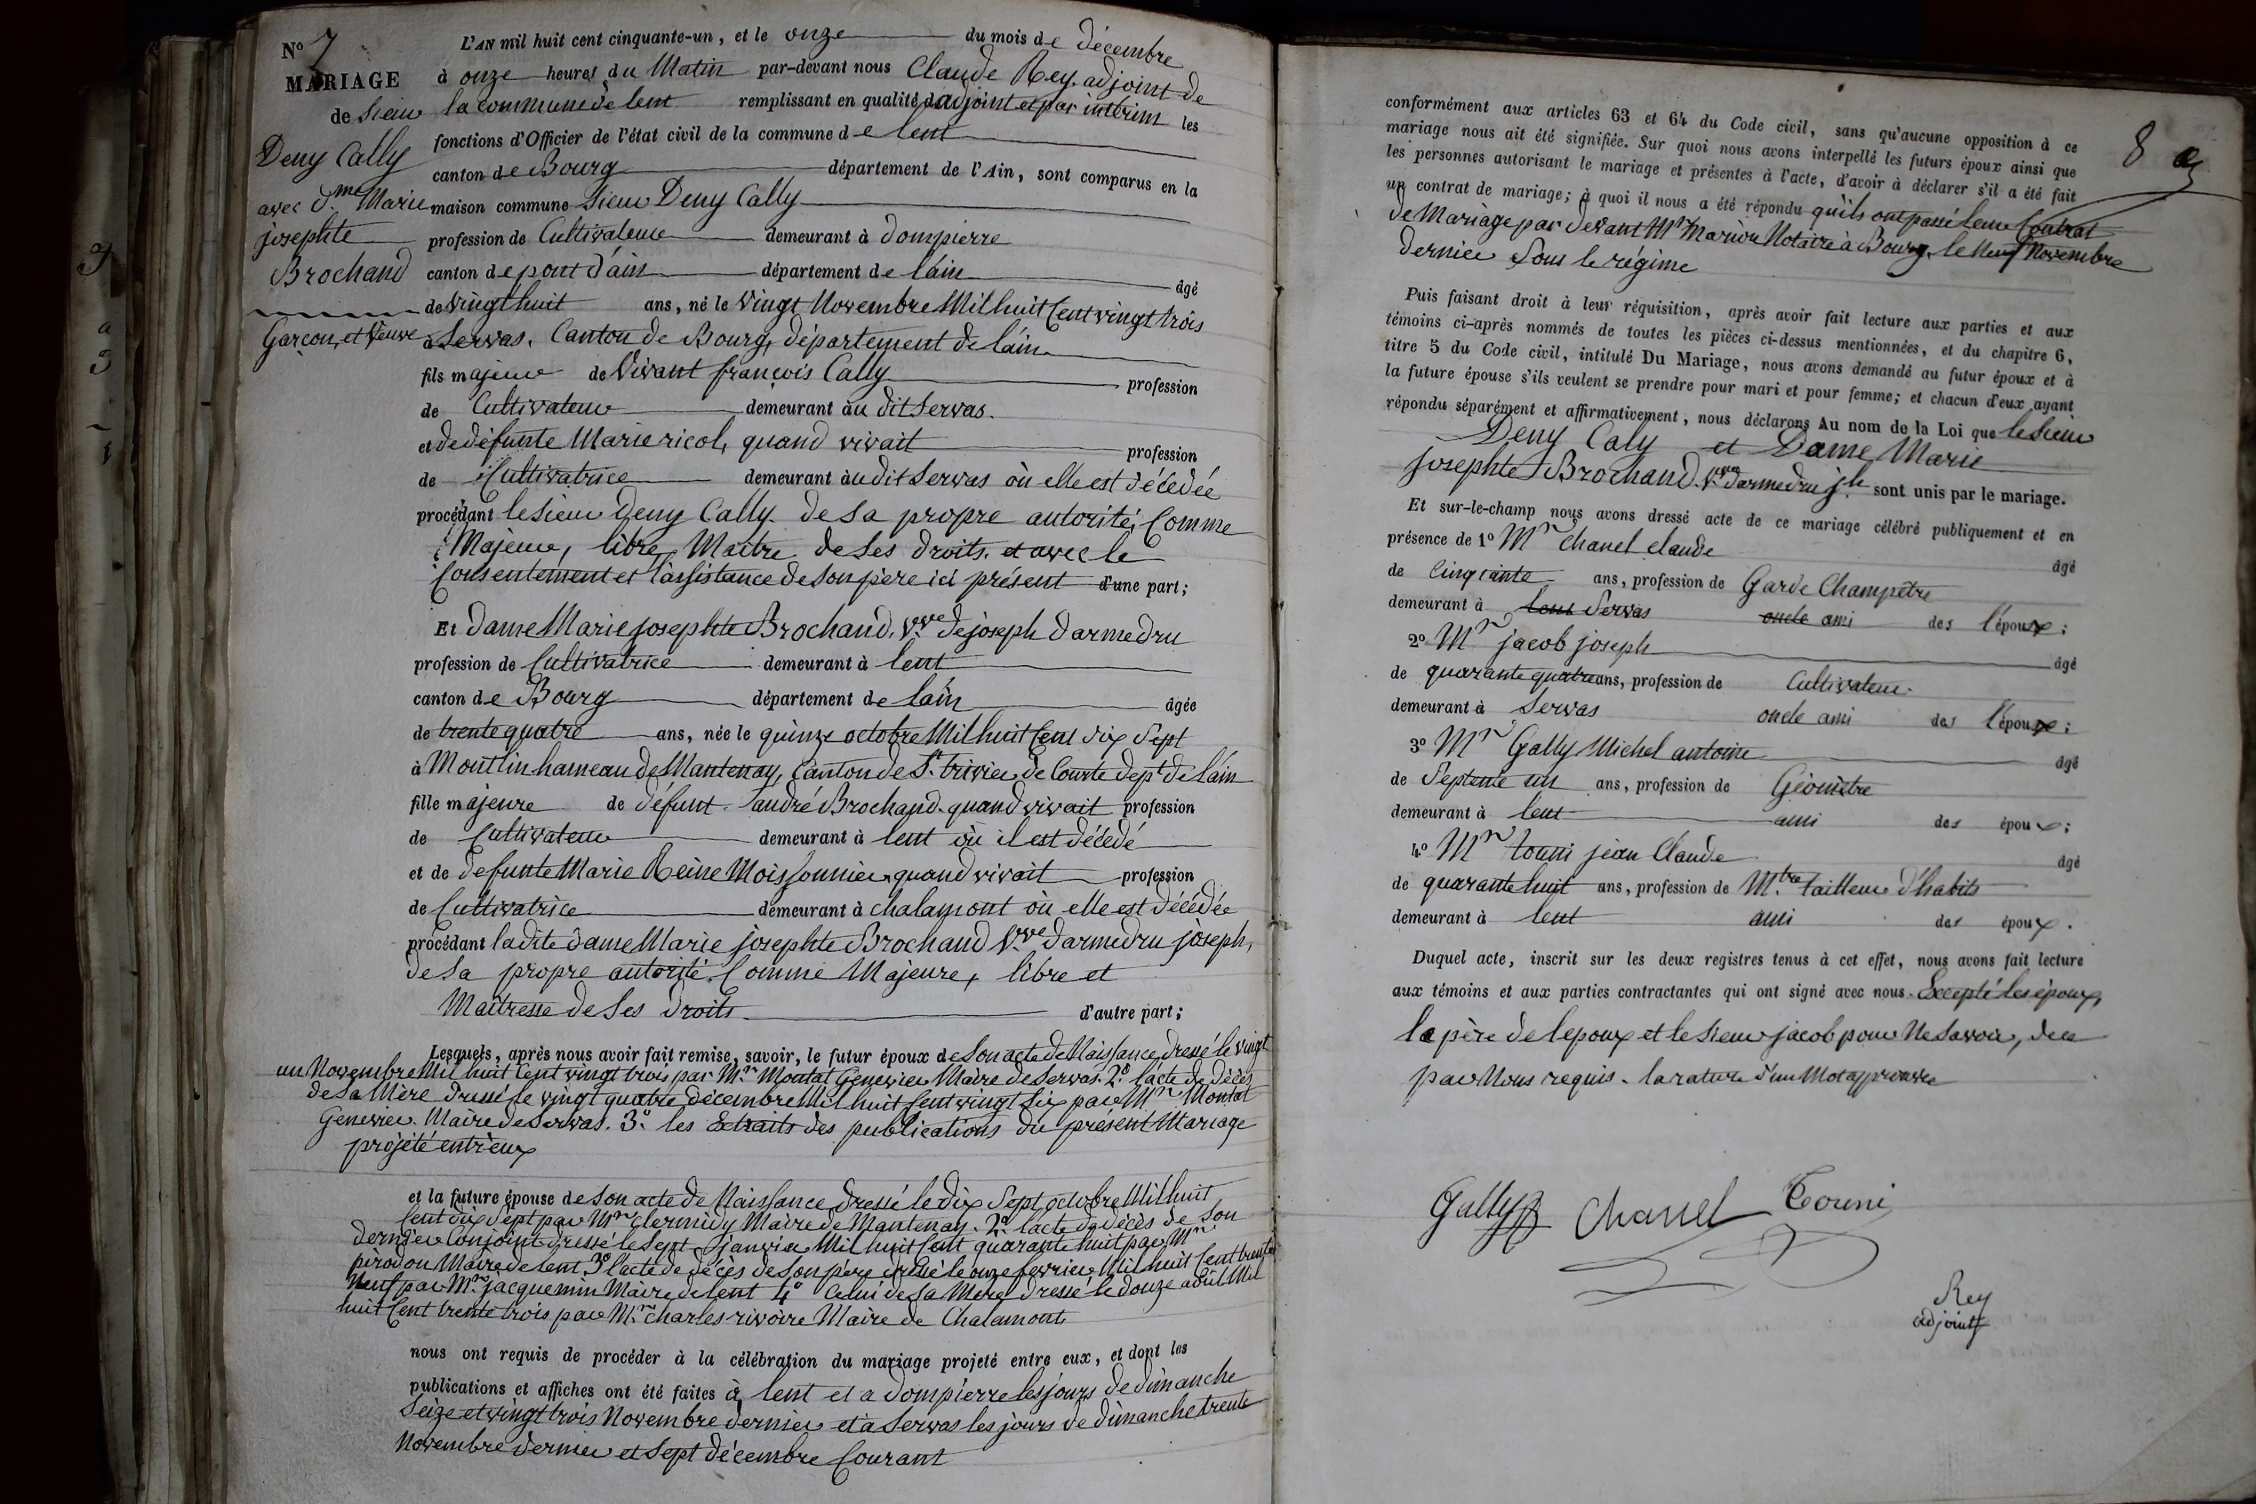 N° 7
MARIAGE
de Sieur
Deny Cally
avec d.me Marie
josephte
Brochand
Garçon, et Veuve
L'AN mil huit cent cinquante-un, et le onze du mois de décembre
à onze heures du Matin par-devant nous Claude Rey, adjoint de
la commune de lent remplissant en qualité d'adjoint et par intérim les
fonctions d'Officier de l'état civil de la commune de lent
canton de Bourg département de l'Ain, sont comparus en la
maison commune Sieur Deny Cally
profession de Cultivateur demeurant à Dompierre
canton de pont d'ain département de l'ain âgé
de vingt huit ans, né le vingt Novembre Mil huit Cent vingt trois
à Servas, Canton de Bourg, département de l'ain
fils majeur de Vivant françois Cally profession
de Cultivateur demeurant au dit Servas.
et de défunte Marie ricol, quand vivait profession
de Cultivatrice demeurant au dit Servas où elle est décédée
procédant le sieur Deny Cally de sa propre autorité, Comme
Majeur, libre, Maître de ses droits, et avec le
Consentement et l'assistance de son père ici présent d'une part;
Et dame Marie josephte Brochand, Vve de joseph darmedru
profession de Cultivatrice demeurant à lent
canton de Bourg département de l'ain âgée
de trente quatre ans, née le quinze octobre Mil huit Cent dix Sept
à Moutlin hameau de Mantenay, Canton de St. trivier de Courte dept. de l'ain
fille majeure de défunt andré Brochand quand vivait profession
de Cultivateur demeurant à lent où il est décédé
et de defunte Marie Reine Moissonnier quand vivait profession
de Cultivatrice demeurant à chalamont où elle est décédée
procédant la dite dame Marie josephte Brochand Vve darmedru joseph,
de sa propre autorité Comme Majeure, libre et
Maitresse de ses droits. d'autre part;
Lesquels, après nous avoir fait remise, savoir, le futur époux de Son acte de Naissance dressé le vingt
un Novembre Mil huit Cent vingt trois par Mr. Montat Genevier Maire de Servas. 2° l'acte de décès
de sa Mère dressé le vingt quatre décembre Mil huit Cent vingt six par Mr. Montat
Genevier Maire de Servas. 3° les Extraits des publications du présent Mariage
projété entr'eux
et la future épouse de son acte de Naissance dressé le dix Sept octobre Mil huit
Cent dix Sept par Mr. clermidy Maire de Mantenay. 2° l'acte de décès de son
dernier Conjoint dressé le Sept janvier Mil huit Cent quarante huit par Mr.
pirodon Maire de lent 3° l'acte de décès de son père dressé le onze fevrier Mil huit Cent trente
Neuf par Mr. jacquemin Maire de lent 4° Celui de sa Mère dressé le douze août Mil
huit Cent trente trois par Mr. charles rivoire Maire de Chalamont
nous ont requis de procéder à la célébration du mariage projeté entre eux, et dont les
publications et affiches ont été faites à lent et a dompierre les jours de dimanche
Seize et vingt trois Novembre dernier et a Servas les jours de dimanche trente
Novembre dernier et sept décembre Courant
8
conformément aux articles 63 et 64 du Code civil, sans qu'aucune opposition à ce
mariage nous ait été signifiée. Sur quoi nous avons interpellé les futurs époux ainsi que
les personnes autorisant le mariage et présentes à l'acte, d'avoir à déclarer s'il a été fait
un contrat de mariage; à quoi il nous a été répondu qu'ils ont passé leur Contrat
de Mariage par devant Mr Marion Notaire à Bourg, le Neuf Novembre
dernier Sous le régime
Puis faisant droit à leur réquisition, après avoir fait lecture aux parties et aux
témoins ci-après nommés de toutes les pièces ci-dessus mentionnées, et du chapitre 6,
titre 5 du Code civil, intitulé Du Mariage, nous avons demandé au futur époux et à
la future épouse s'ils veulent se prendre pour mari et pour femme; et chacun d'eux ayant
répondu séparément et affirmativement, nous déclarons Au nom de la Loi que le sieur
Deny Caly et Dame Marie
josephte Brochand Vve darmedru jph sont unis par le mariage.
Et sur-le-champ nous avons dressé acte de ce mariage célébré publiquement et en
présence de 1° Mr Chanel claude âgé
de Cinqtante ans, profession de Garde Champêtre
demeurant à lent Servas oncle ami des l'époux;
2° Mr jacob joseph âgé
de quarante quatre ans, profession de Cultivateur
demeurant à Servas oncle ami des l'époux;
3° Mr Gally Michel antoine âgé
de Septente un ans, profession de Géomètre
demeurant à lent ami des époux;
4° Mr touni jean Claude âgé
de quarante huit ans, profession de Mtre tailleur d'habits
demeurant à lent ami des époux.
Duquel acte, inscrit sur les deux registres tenus à cet effet, nous avons fait lecture
aux témoins et aux parties contractantes qui ont signé avec nous. Excepté les époux,
le père de lepoux et le sieur jacob pour Ne savoir, de ce
par Nous requis. la rature d'un Mot approuvée
Gally Chanel Touni
Rey
adjoint